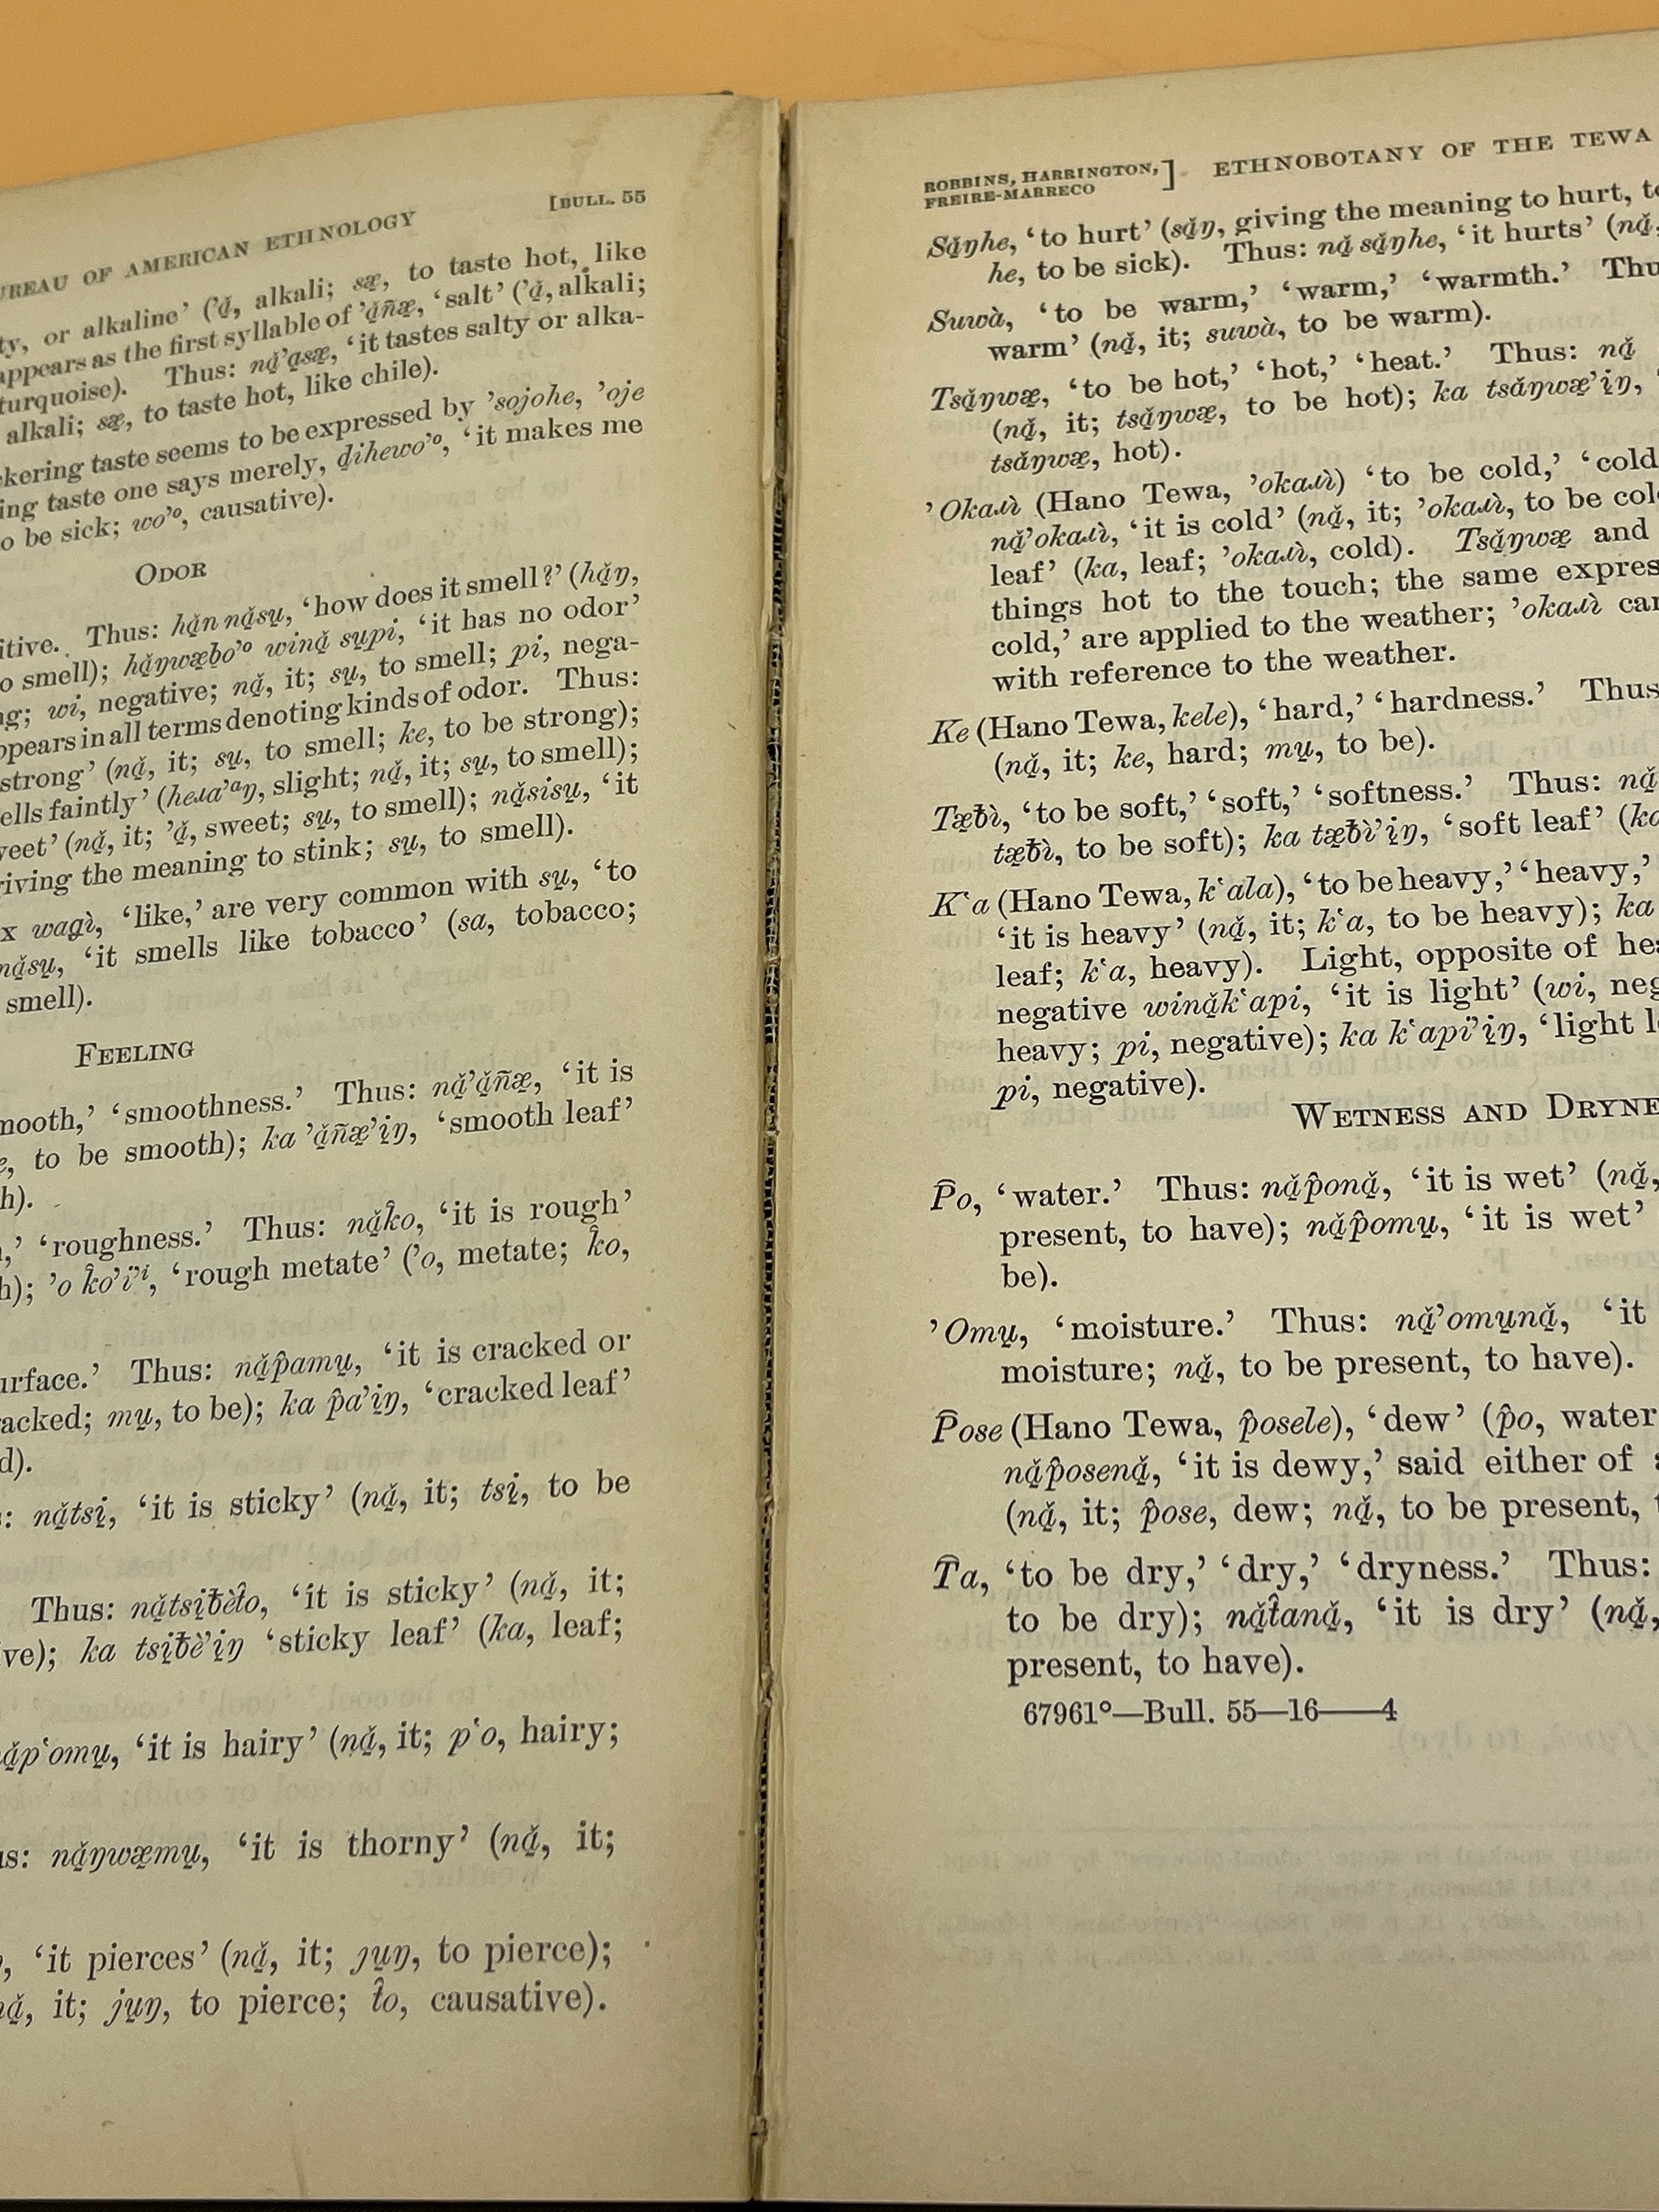 BUREAU OF AMERICAN ETHNOLOGY [BULL. 55
or alkaline’ (’ą̌, alkali; sæ̨, to taste hot, like
appears as the first syllable of ’ą̌ñæ, ‘salt’ (’ą̌, alkali;
turquoise). Thus: ną̌’ąsæ̨, ‘it tastes salty or alka-
alkali; sæ̨, to taste hot, like chile).
taste seems to be expressed by ’sojohe, ’oje
taste one says merely, ḍihewo’ᵒ, ‘it makes me
be sick; wo’ᵒ, causative).
ODOR
Thus: hą̌n ną̌sų, ‘how does it smell?’ (hą̌ŋ,
smell); hą̌ŋwæ̨ḅo’ᵒ winą̌ sųpi, ‘it has no odor’
wi, negative; ną̌, it; sų, to smell; pi, nega-
appears in all terms denoting kinds of odor. Thus:
strong’ (ną̌, it; sų, to smell; ke, to be strong);
faintly’ (heɹa’ᵃŋ, slight; ną̌, it; sų, to smell);
(ną̌, it; ’ą̌, sweet; sų, to smell); ną̌sisų, ‘it
giving the meaning to stink; sų, to smell).
wagì, ‘like,’ are very common with sų, ‘to
ną̌sų, ‘it smells like tobacco’ (sa, tobacco;
smell).
FEELING
‘smoothness.’ Thus: ną̌’ą̌ñæ, ‘it is
to be smooth); ka ’ą̌ñæ’įŋ, ‘smooth leaf’
‘roughness.’ Thus: ną̌k̂o, ‘it is rough’
’o k̂o’ï’ⁱ, ‘rough metate’ (’o, metate; k̂o,
Thus: ną̌p̂amų, ‘it is cracked or
mų, to be); ka p̂a’įŋ, ‘cracked leaf’
ną̌tsį, ‘it is sticky’ (ną̌, it; tsį, to be
Thus: ną̌tsįƀèt̂o, ‘it is sticky’ (ną̌, it;
ka tsįƀè’įŋ ‘sticky leaf’ (ka, leaf;
ną̌p‛omų, ‘it is hairy’ (ną̌, it; p‛o, hairy;
ną̌ŋwæ̨mų, ‘it is thorny’ (ną̌, it;
‘it pierces’ (ną̌, it; jųŋ, to pierce);
ną̌, it; jųŋ, to pierce; t̂o, causative).
ROBBINS, HARRINGTON,
FREIRE-MARRECO ] ETHNOBOTANY OF THE TEWA
Są̌ŋhe, ‘to hurt’ (są̌ŋ, giving the meaning to hurt,
he, to be sick). Thus: ną̌ są̌ŋhe, ‘it hurts’ (ną̌,
Suwà, ‘to be warm,’ ‘warm,’ ‘warmth.’
warm’ (ną̌, it; suwà, to be warm).
Tsą̌ŋwæ̨, ‘to be hot,’ ‘hot,’ ‘heat.’ Thus: ną̌
(ną̌, it; tsą̌ŋwæ̨, to be hot); ka tsą̌ŋwæ̨’įŋ,
tsą̌ŋwæ̨, hot).
’Okaɹì (Hano Tewa, ’okaɹì) ‘to be cold,’ ‘cold
ną̌’okaɹì, ‘it is cold’ (ną̌, it; ’okaɹì, to be
leaf’ (ka, leaf; ’okaɹì, cold). Tsą̌ŋwæ̨ and
things hot to the touch; the same
cold,’ are applied to the weather; ’okaɹì
with reference to the weather.
Ke (Hano Tewa, kele), ‘hard,’ ‘hardness.’ Thus
(ną̌, it; ke, hard; mų, to be).
Tæ̨ƀì, ‘to be soft,’ ‘soft,’ ‘softness.’ Thus: ną̌
tæ̨ƀì, to be soft); ka tæ̨ƀì’įŋ, ‘soft leaf’
K‛a (Hano Tewa, k‛ala), ‘to be heavy,’ ‘heavy,’
‘it is heavy’ (ną̌, it; k‛a, to be heavy); ka
leaf; k‛a, heavy). Light, opposite of
negative winą̌k‛api, ‘it is light’ (wi,
heavy; pi, negative); ka k‛api’įŋ, ‘light
pi, negative).
WETNESS AND
P̂o, ‘water.’ Thus: ną̌p̂oną̌, ‘it is wet’ (ną̌,
present, to have); ną̌p̂omų, ‘it is wet’
be).
’Omų, ‘moisture.’ Thus: ną̌’omųną̌, ‘it
moisture; ną̌, to be present, to have).
P̂ose (Hano Tewa, p̂osele), ‘dew’ (p̂o, water
ną̌p̂oseną̌, ‘it is dewy,’ said either of
(ną̌, it; p̂ose, dew; ną̌, to be present,
T̂a, ‘to be dry,’ ‘dry,’ ‘dryness.’ Thus:
to be dry); ną̌t̂aną̌, ‘it is dry’ (ną̌,
present, to have).
67961°—Bull. 55—16——4